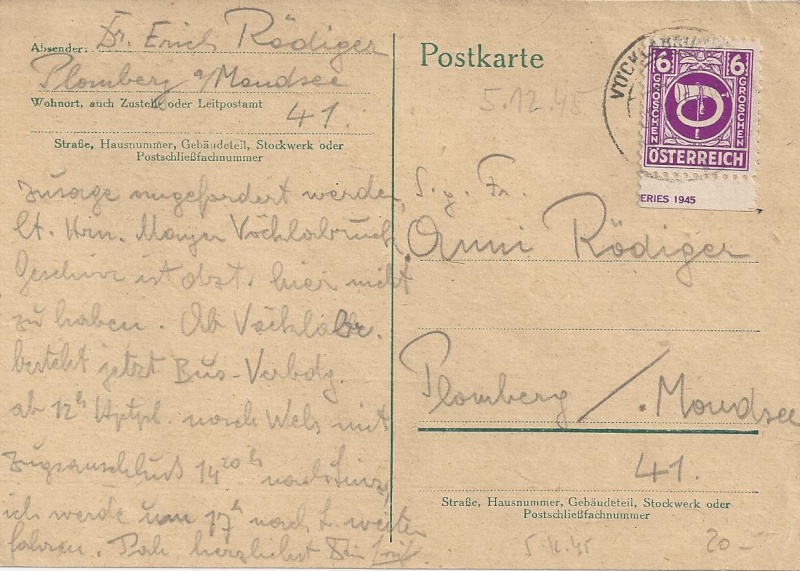 Absender: Dr. Erich Rödiger
Plomberg a/Mondsee
Wohnort, auch Zustell- oder Leitpostamt
41.
Straße, Hausnummer, Gebäudeteil, Stockwerk oder
Postschließfachnummer
angefordert werden,
lt. Hrn. Mayer Vöcklabruck
Geschirr ist dzt. hier nicht
zu haben. Ab Vöcklabr.
besteht jetzt Bus-Verbdg.
ab 12h Hptpl. nach Wels mit
Zugsanschluss 14 20 h nach Linz,
ich werde um 17h nach L. weiter
fahren. herzlichst Dein
Postkarte
5.12.45
VÖCKLABRUCK
6 6
GROSCHEN GROSCHEN
ÖSTERREICH
ERIES 1945
S. g. Fr.
Anni Rödiger
Plomberg /Mondsee
41.
Straße, Hausnummer, Gebäudeteil, Stockwerk oder
Postschließfachnummer
20-